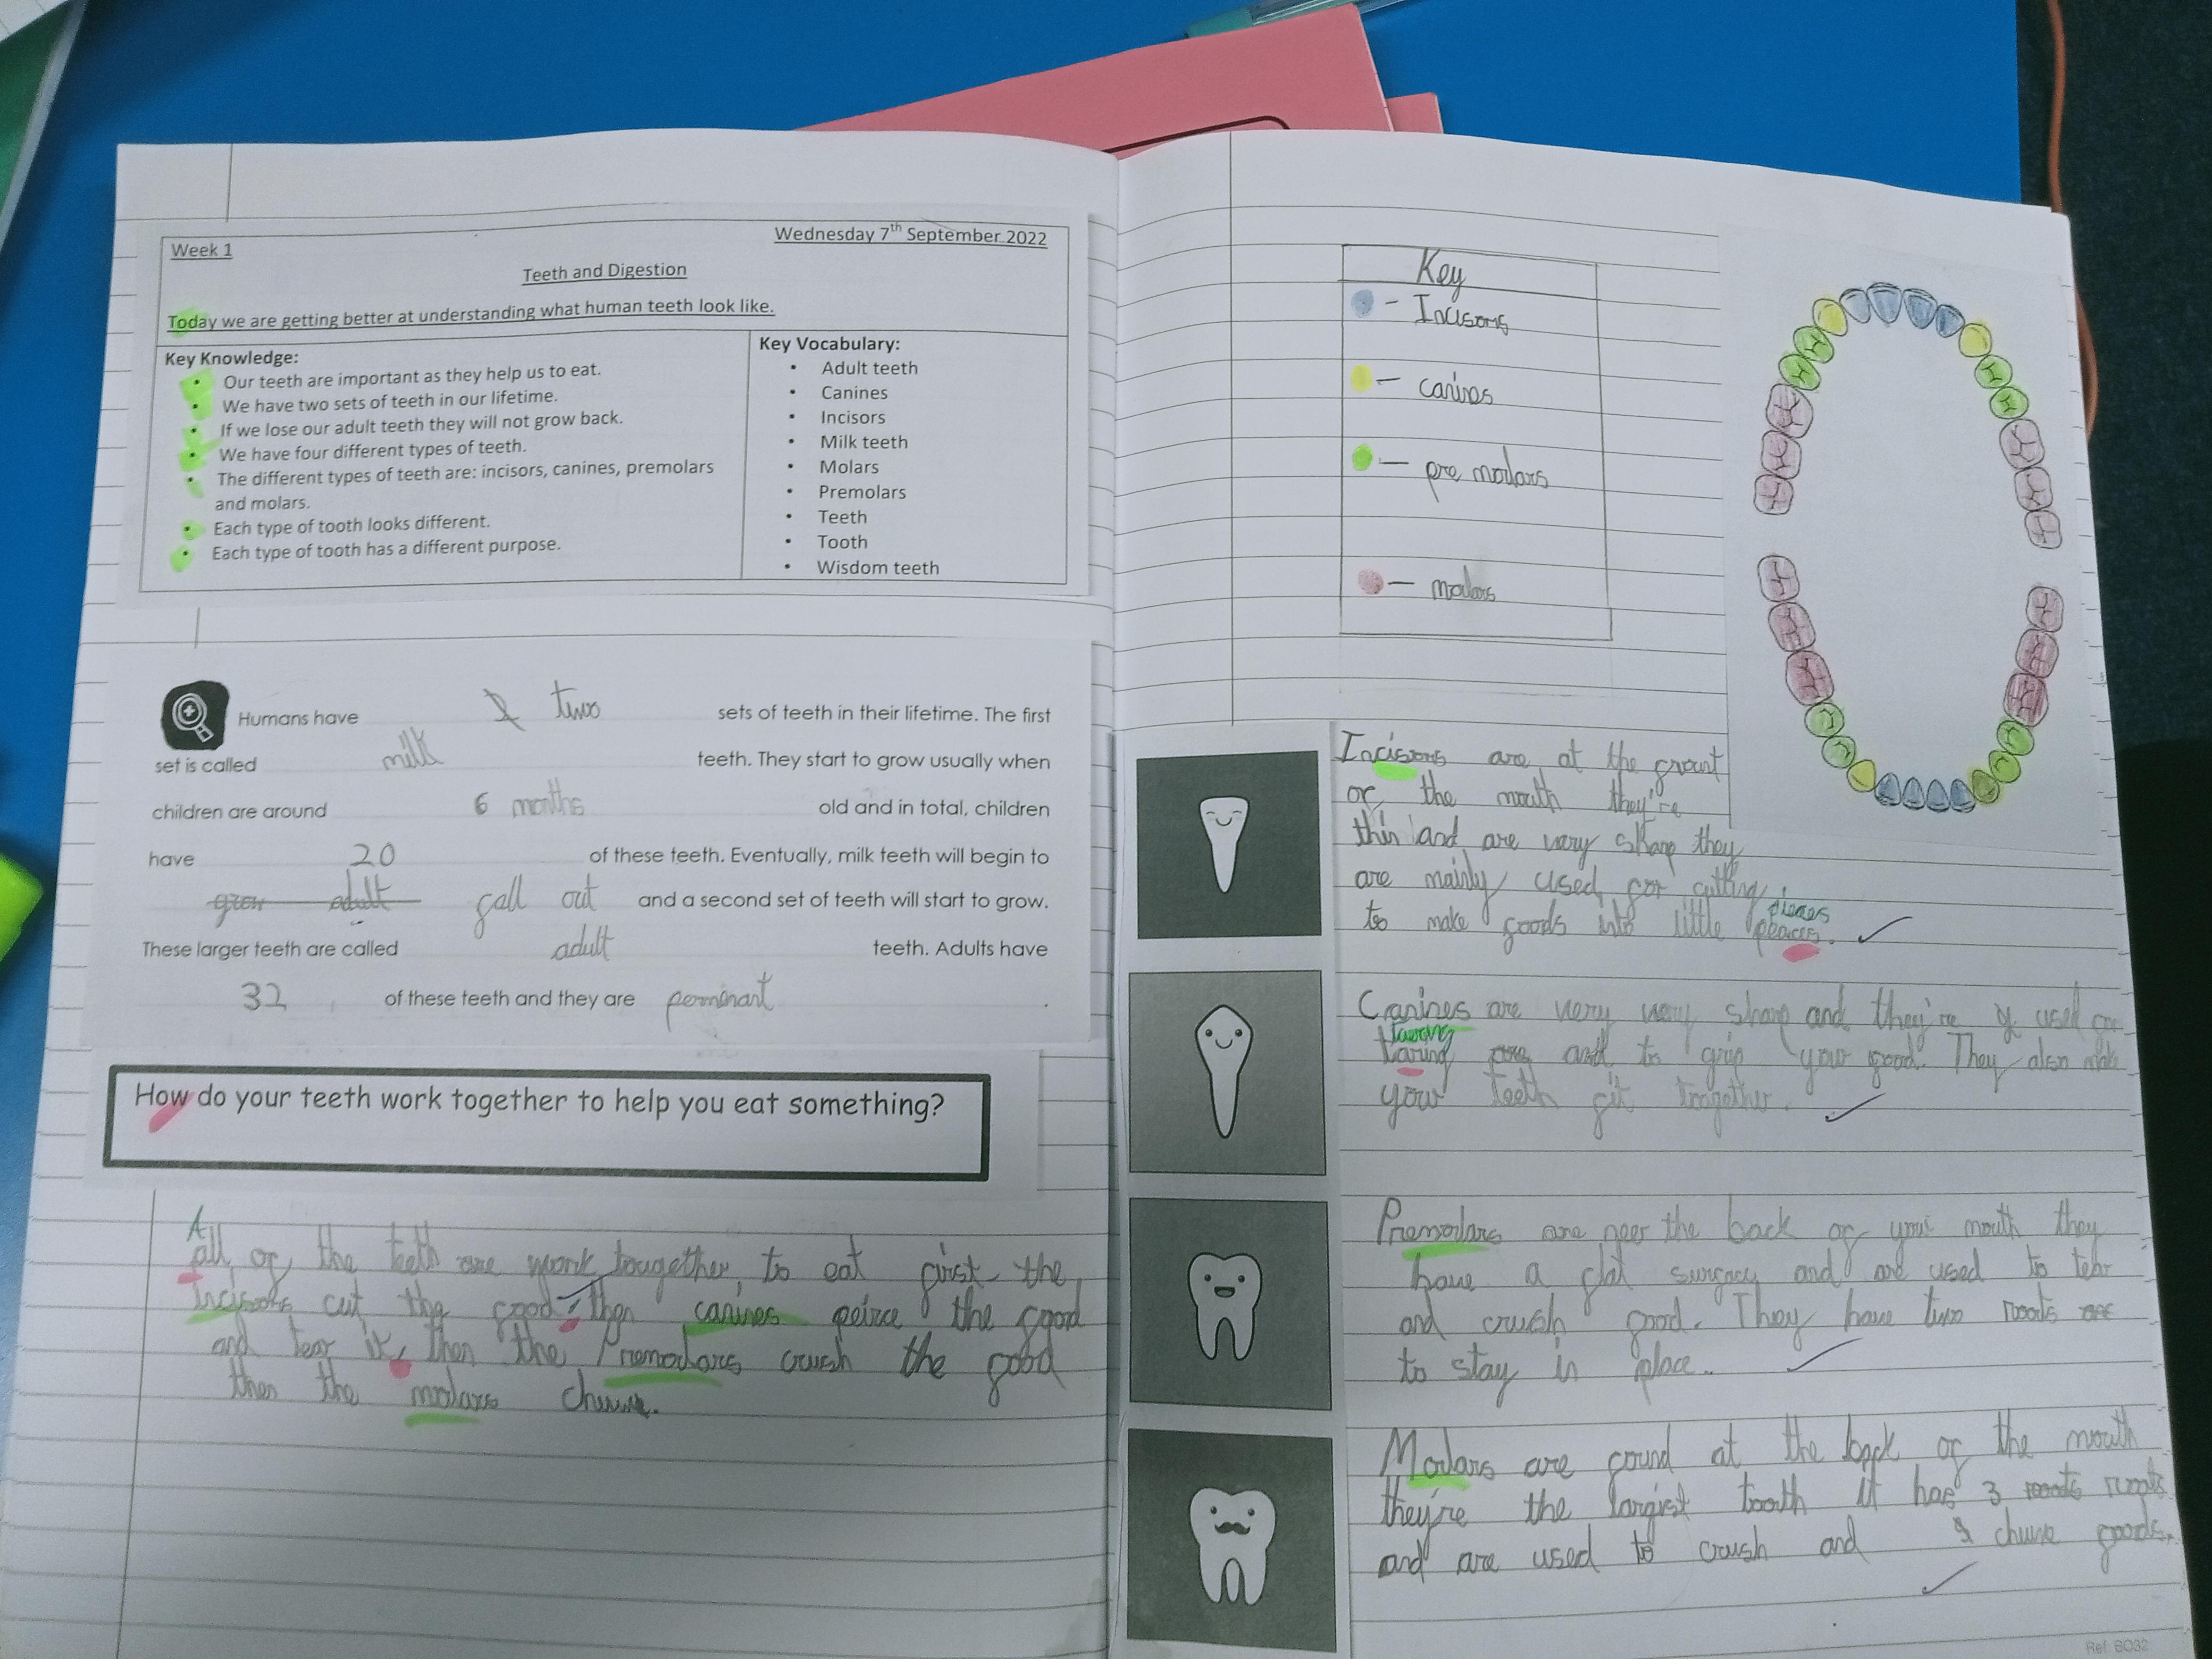 Week 1
Wednesday 7th September 2022
Teeth and Digestion
Today we are getting better at understanding what human teeth look like.
Key Knowledge:
• Our teeth are important as they help us to eat.
• We have two sets of teeth in our lifetime.
• If we lose our adult teeth they will not grow back.
• We have four different types of teeth.
• The different types of teeth are: incisors, canines, premolars
and molars.
• Each type of tooth looks different.
• Each type of tooth has a different purpose.
Key Vocabulary:
• Adult teeth
• Canines
• Incisors
• Milk teeth
• Molars
• Premolars
• Teeth
• Tooth
• Wisdom teeth
Humans have two sets of teeth in their lifetime. The first
set is called milk teeth. They start to grow usually when
children are around 6 months old and in total, children
have 20 of these teeth. Eventually, milk teeth will begin to
grow adult fall out and a second set of teeth will start to grow.
These larger teeth are called adult teeth. Adults have
32 of these teeth and they are perminant.
How do your teeth work together to help you eat something?
A
all of the teeth are work tougether to eat first the
incisors cut the food, then canines peirce the food
and tear it, then the Premolars crush the food
then the molars chuw.
Key
- Incisors
- canines
- pre molars
- molars
Incisors are at the front
of the mouth they're
thin and are very sharp they
are mainly used for cutting
pieces
to make foods into little
Canines are very very sharp and they're used for
tearing
taring and to grip your food. They also make
your teeth fit together.
Premolars are neer the back of your mouth they
have a flat surfacy and are used to tear
and crush food. They have two roots are
to stay in place.
Molars are found at the back of the mouth
they're the largist tooth it has 3 roots
and are used to crush and chuw foods.
Ref: 6032